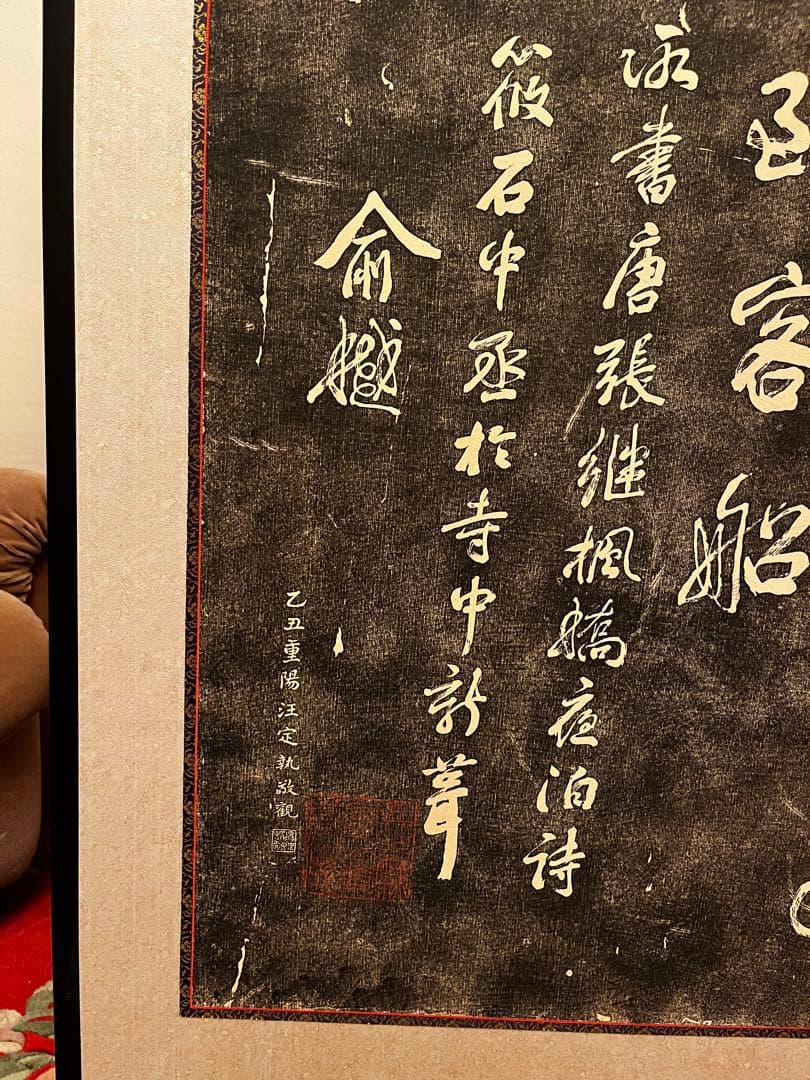 到客船
所書唐張繼楓橋夜泊詩
筱石中丞於寺中新葺
俞樾
乙丑重陽汪定執敬觀